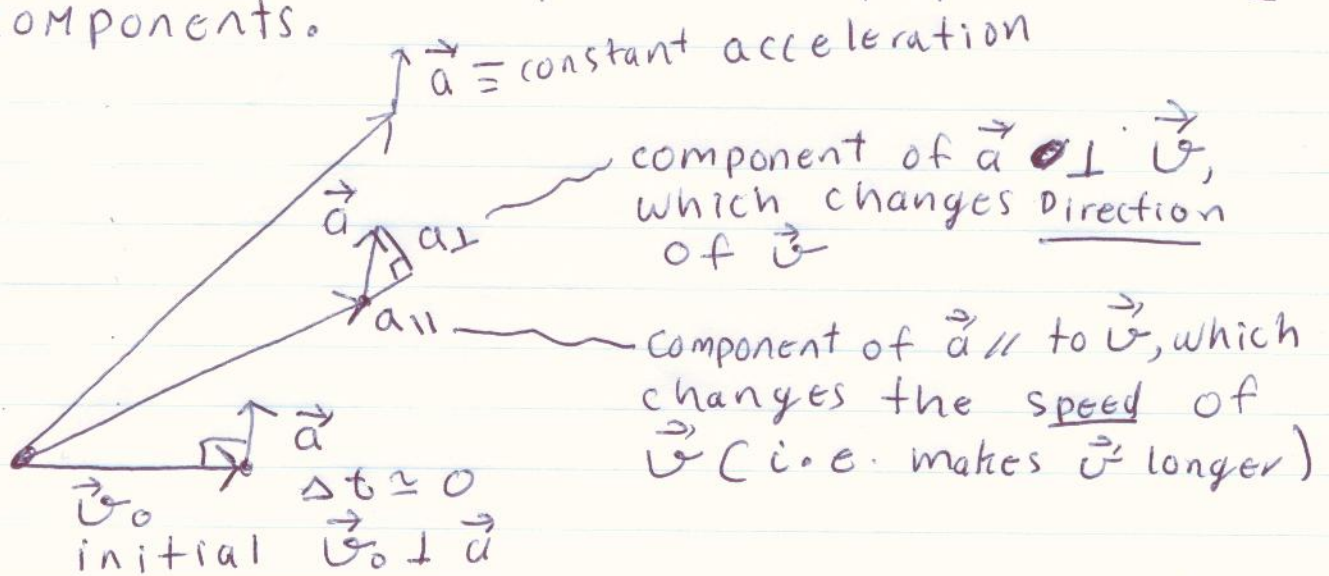 omponents.
a⃗ ≡ constant acceleration
component of a⃗ ⊥ v⃗,
which changes Direction
of v⃗
a⃗ a⊥
a∥
component of a⃗ // to v⃗, which
changes the speed of
v⃗ (i.e. makes v⃗ longer)
a⃗
Δt ≃ 0
v⃗₀
initial v⃗₀ ⊥ a⃗